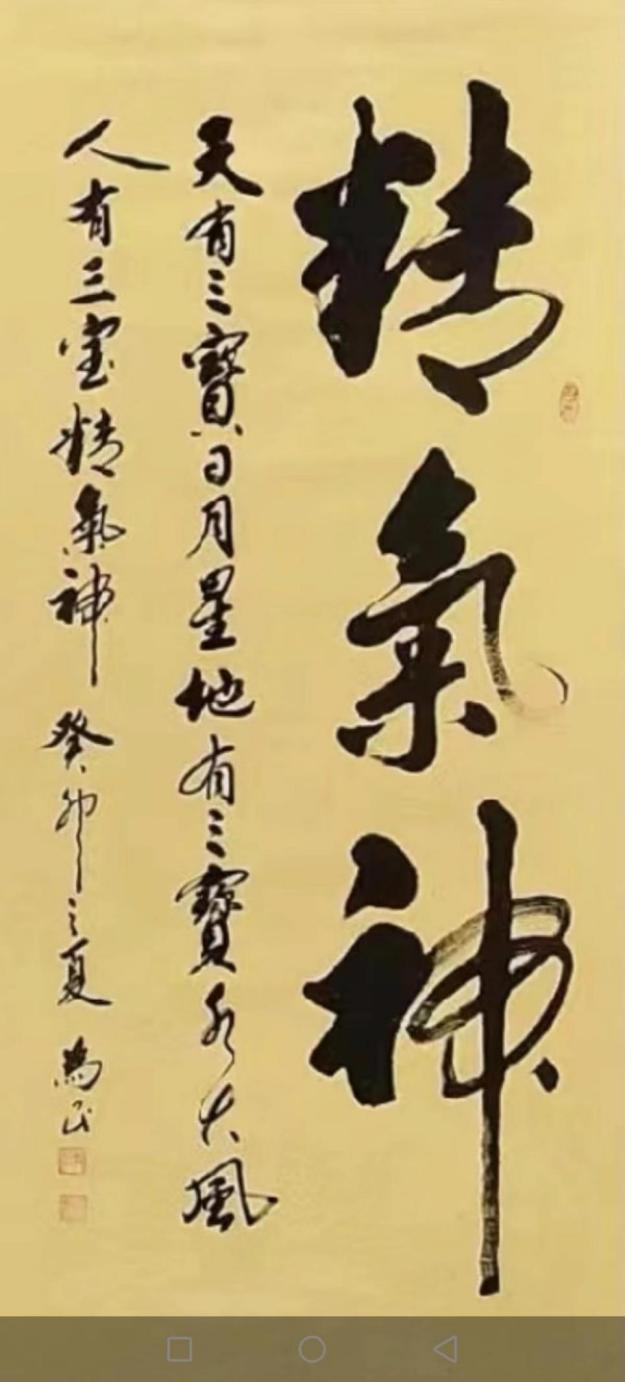 精氣神
天有三寶日月星地有三寶水火風
人有三宝精氣神 癸卯之夏